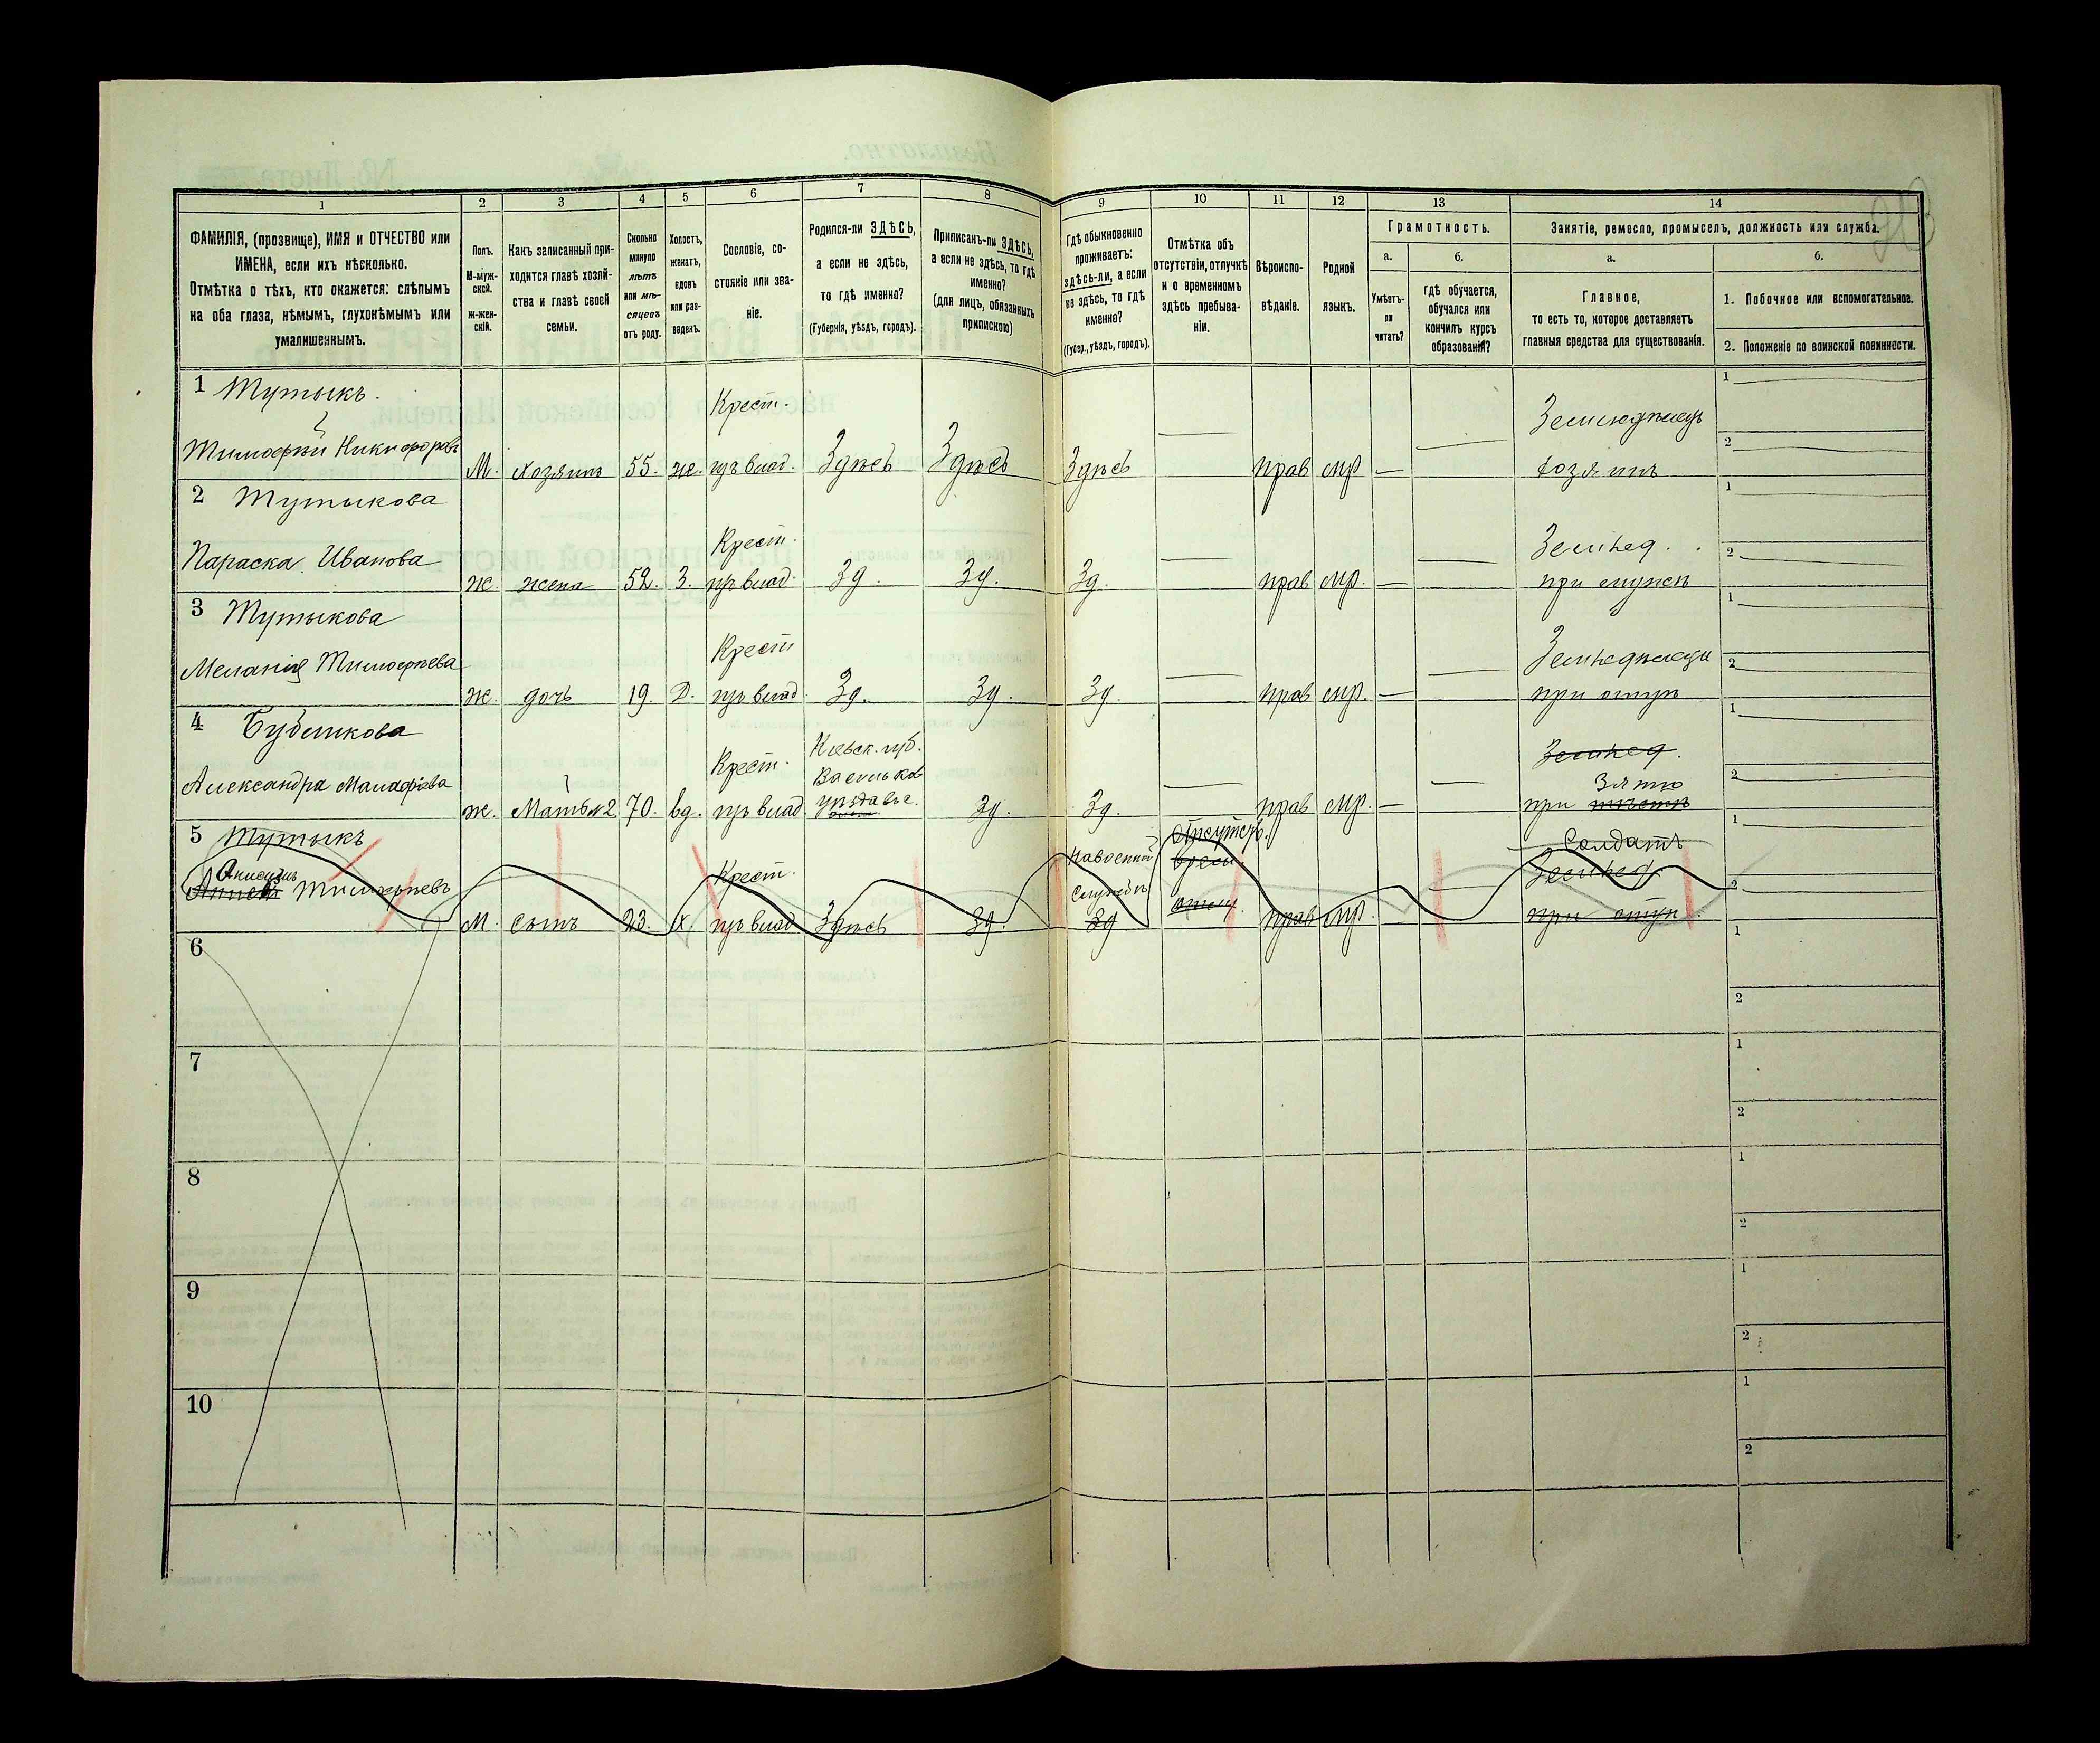 1
2
3
4
5
6
7
8
9
10
11
12
13
14
ФАМИЛІЯ, (прозвище), ИМЯ и ОТЧЕСТВО или
ИМЕНА, если ихъ нѣсколько.
Отмѣтка о тѣхъ, кто окажется: слѣпымъ
на оба глаза, нѣмымъ, глухонѣмымъ или
умалишеннымъ.
Полъ.
М-муж-
ской.
Ж-жен-
скій.
Какъ записанный при-
ходится главѣ хозяй-
ства и главѣ своей
семьи.
Сколько
минуло
лѣтъ
или мѣ-
сяцевъ
отъ роду.
Холостъ,
женатъ,
вдовъ
или раз-
веденъ.
Сословіе, со-
стояніе или зва-
ніе.
Родился-ли ЗДѢСЬ,
а если не здѣсь,
то гдѣ именно?
(Губернія, уѣздъ, городъ).
Приписанъ-ли ЗДѢСЬ,
а если не здѣсь, то гдѣ
именно?
(для лицъ, обязанныхъ
припискою)
Гдѣ обыкновенно
проживаетъ:
здѣсь-ли, а если
не здѣсь, то гдѣ
именно?
(Губер., уѣздъ, городъ).
Отмѣтка объ
отсутствіи, отлучкѣ
и о временномъ
здѣсь пребыва-
ніи.
Вѣроиспо-
вѣданіе.
Родной
языкъ.
Грамотность.
а.
Умѣетъ-
ли
читать?
б.
гдѣ обучается,
обучался или
кончилъ курсъ
образованія?
Занятіе, ремесло, промыселъ, должность или служба.
а.
Главное,
то есть то, которое доставляетъ
главныя средства для существованія.
б.
1. Побочное или вспомогательное.
2. Положеніе по воинской повинности.
1 Мутыкъ.
Тимофѣй Никифоровъ
М. хозяинъ 55. же. Крест.
изъ влад. Здѣсь Здѣсь Здѣсь — прав мр — — Земледѣлецъ
хозяинъ
1
2
2 Мутыкова
Параска Иванова
ж. жена 52. З. Крест.
изъ влад. Зд. Зд. Зд. — прав мр. — — Землед.
при мужѣ
1
2
3 Мутыкова
Меланія Тимофѣева
ж. дочь 19. Д. Крест
изъ влад. Зд. Зд. Зд. — прав мр. — —
при отцѣ
1
2
4
Александра
ж. Мать №2 70. вд. Крест.
изъ влад. Кіевск. губ.
Васильков
Зд. Зд. — прав мр. — —Землед.
Зятю
при
1
2
5 Мутыкъ
Онисимъ
Тимофѣевъ
М. сынъ 23. Х. Крест.
изъ влад Здѣсь Зд. На военной
службѣ
Зд
Отсутств.
прав мр. — Солдатъ
Землед.
при отцѣ
1
2
6
1
2
7
1
2
8
1
2
9
1
2
10
1
2